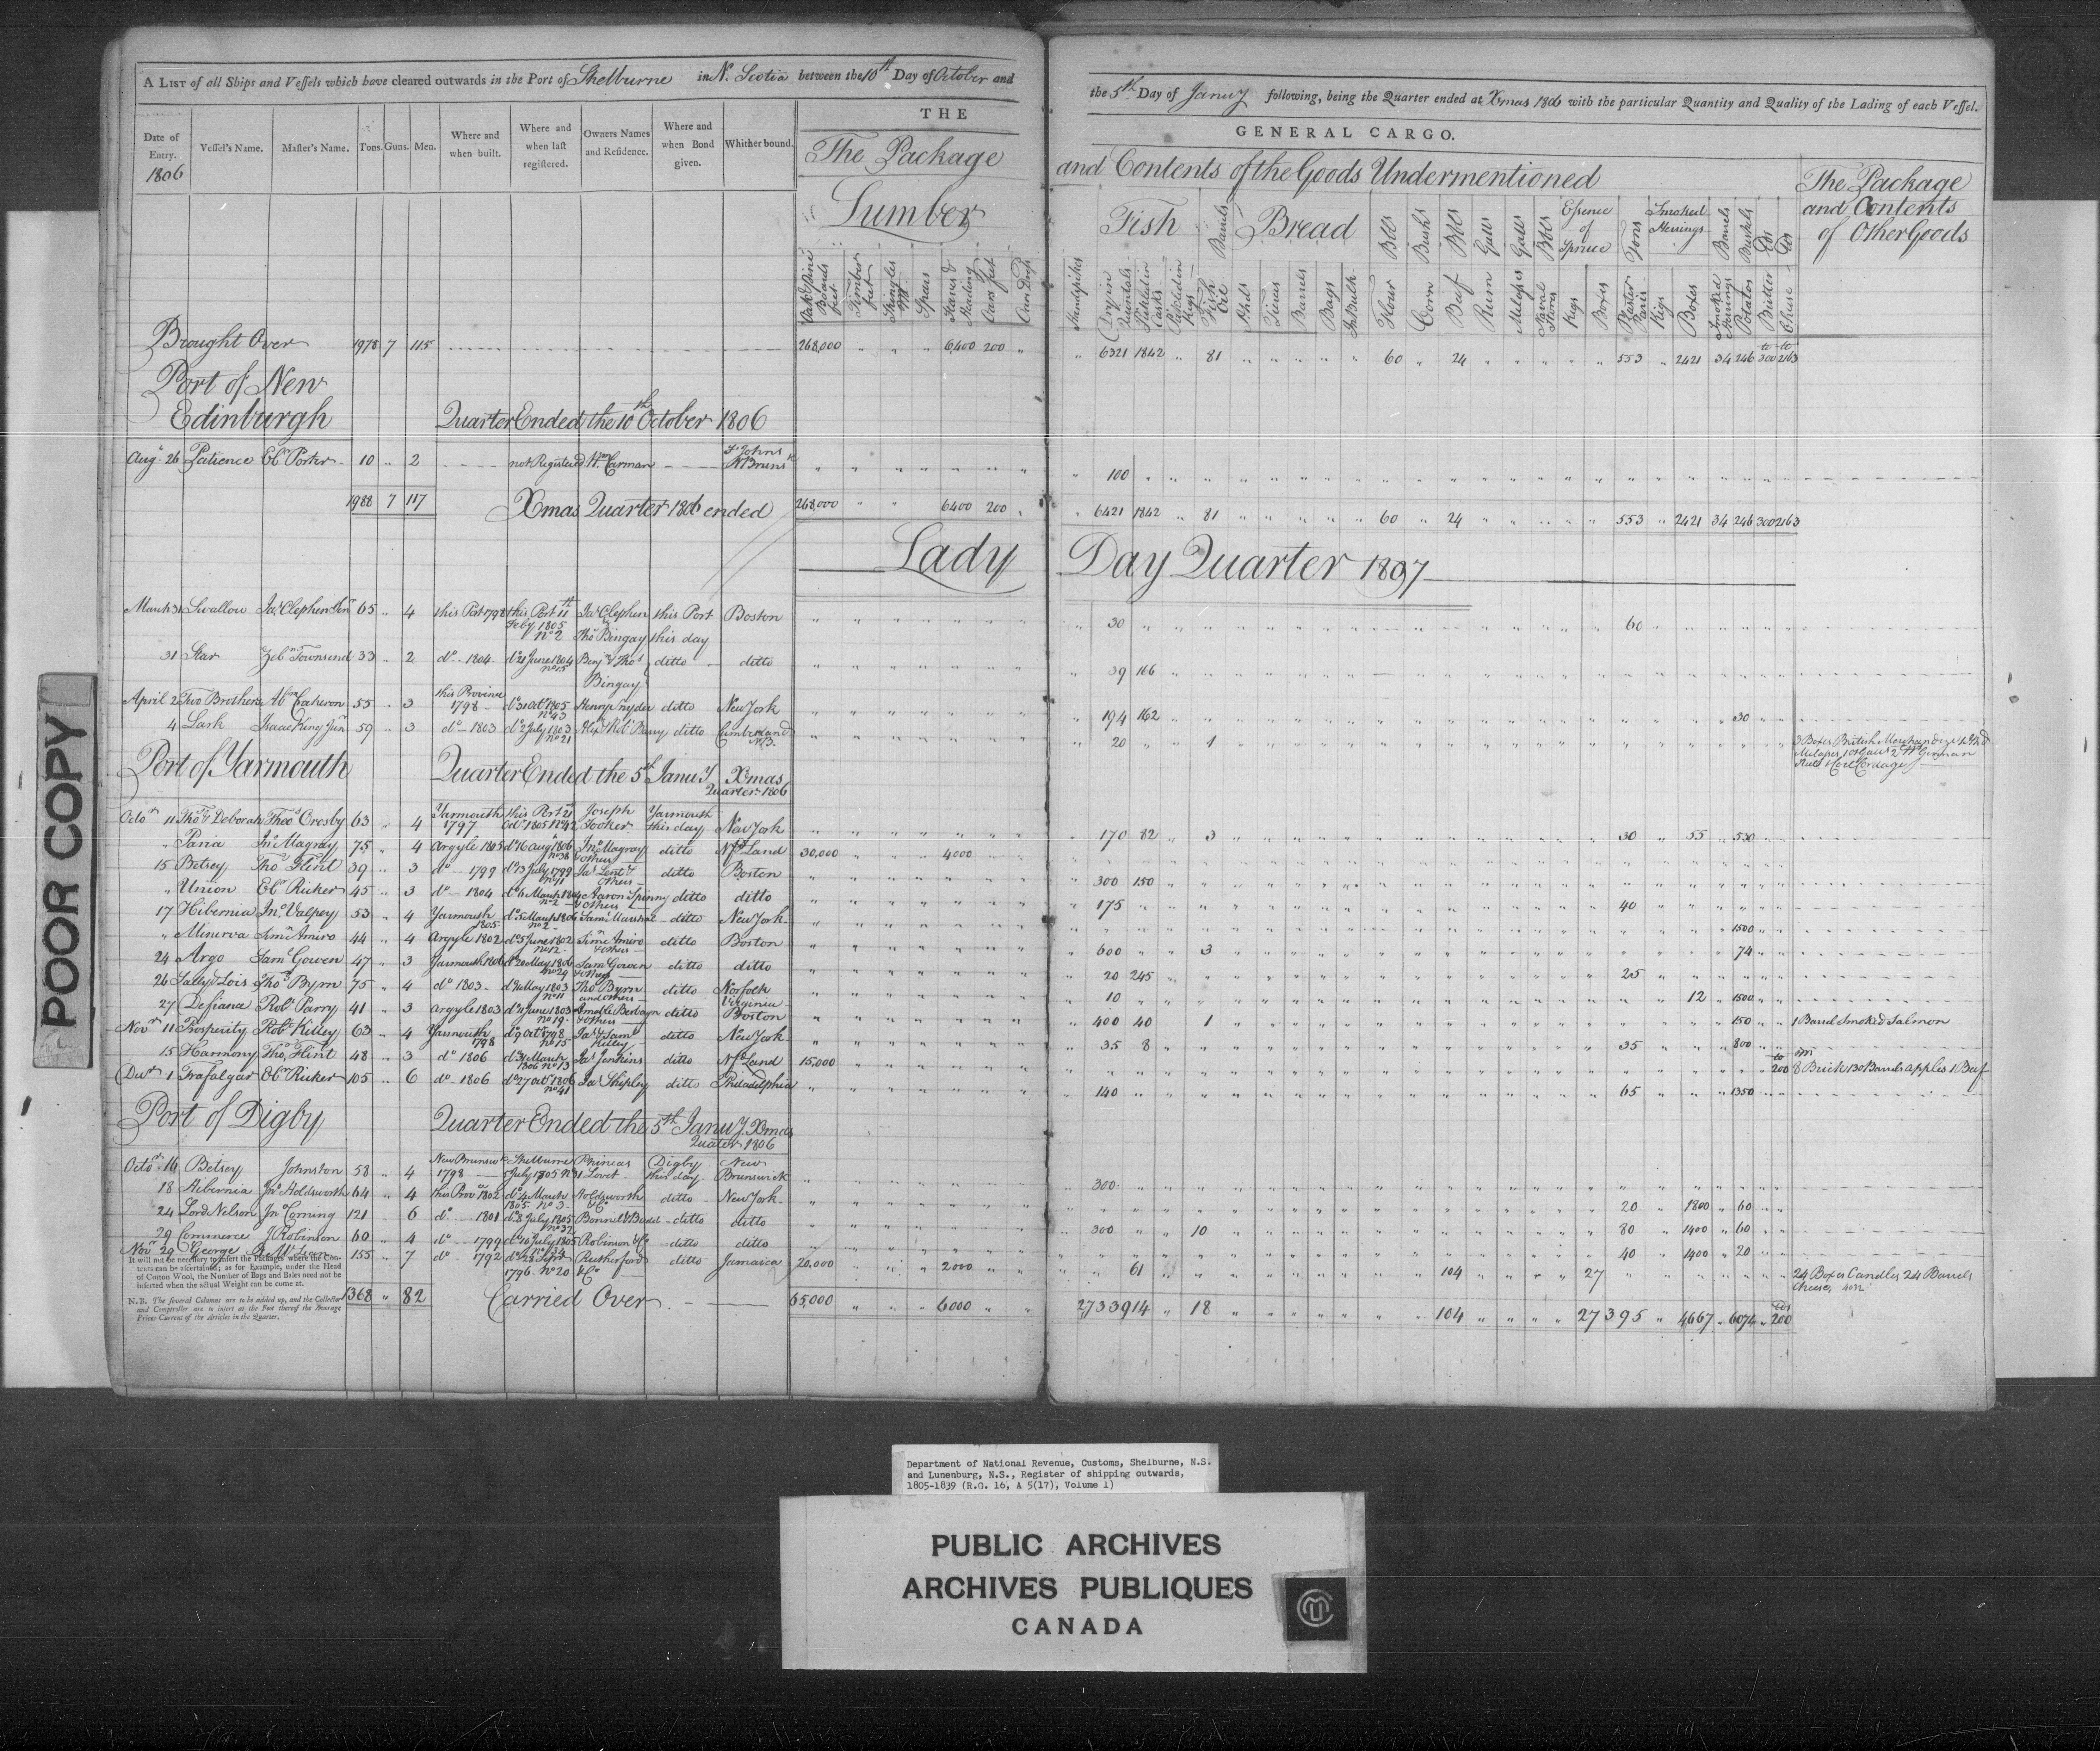 A LIST of all Ships and Vessels which have cleared outwards in the Port of Shelburne in N. Scotia between the 10th Day of October and
the 5th Day of Januy following, being the Quarter ended at Xmas 1806 with the particular Quantity and Quality of the Lading of each Vessel.
THE
GENERAL CARGO.
Date of Entry. 1806
Vessel's Name.
Master's Name.
Tons.
Guns.
Men.
Where and when built.
Where and when last registered.
Owners Names and Residence.
Where and when Bond given.
Whither bound.
The Package
and Contents of the Goods Undermentioned
The Package and Contents of Other Goods
Lumber
Fish
Bread
Essence of Spruce
Smoked Herrings
Brought Over 1978 7 115 268,000 " " " 6,400 200 "
" 6321 1842 " 81 " " " " " 60 " 24 " " " " " " 553 " 2421 34 246 300 2163
Port of New Edinburgh
Quarter Ended the 10th October 1806
Augt 26 Patience Ebr Porter 10 " 2 not Registered Wm Carman St Johns N Brunsk
100
1988 7 117 Xmas Quarter 1806 ended 268,000 " " 6400 200 "
" 6421 1842 " 81 " " " " " 60 " 24 " " " " " " 553 " 2421 34 246 300 2163
Lady Day Quarter 1807
March 31 Swallow Jas Clephen Junr 65 " 4 this Port 1798 this Port 11th Feby 1805 No 2 Jas Clephen & Thos Bingay this Port this day Boston
30 60
31 Star Zebn Townsend 33 " 2 do 1804 do 21 June 1804 No 15 Benj & Thos Bingay ditto ditto
39 166
April 2 Two Brothers Abm Cameron 55 " 3 this Province 1798 do 31 Octr 1805 No 43 Henry Snyder ditto New York
194 162 30
4 Lark Isaac King Junr 59 " 3 do 1803 do 2 July 1803 No 21 Alexr & Robt Barry ditto Cumberland N.B.
20 " " 1
3 Boxes British Merchandize
Port of Yarmouth
Quarter Ended the 5th Januy Xmas Quarter 1806
Octor 11 Thos & Deborah Theos Crosby 63 " 4 Yarmouth 1797 this Port 21 Octr 1805 No 42 Joseph Hooker Yarmouth this day New York
170 82 " 3 30 " 55 " 530
" Pania Jno Magray 75 " 4 Argyle 1805 do 16 Augt 1806 No 38 Jno Magray & others ditto Nfd Land 30,000 4000
15 Betsey Thos Flint 39 " 3 do 1799 do 13 July 1799 No 11 Jas Lent & others ditto Boston
300 150
" Union Ebr Ricker 45 " 3 do 1804 do 6 March 1804 No 2 Aaron Spinny & others ditto ditto
175 40
17 Hibernia Jno Valpey 53 " 4 Yarmouth 1805 do 5 March 1806 No 2 Saml Marshal ditto New York
1500
" Minerva Simn Amiro 44 " 4 Argyle 1802 do 5 June 1802 No 12 Simn Amiro & others ditto Boston
600 " " 3 74
24 Argo Saml Gowen 47 " 3 Yarmouth 1806 do 20 May 1806 No 29 Saml Gowen & others ditto ditto
20 245 25
26 Sally & Lois Thos Byrn 75 " 4 do 1803 do 31 May 1803 No 11 Thos Byrn and others ditto Norfolk Virginia
10 12 " 1500
27 Defiance Robt Parry 41 " 3 Argyle 1803 do 11 June 1803 No 19 & others ditto Boston
400 40 " 1 150 1 Barrel Smoked Salmon
Novr 11 Prosperity Robt Kelley 63 " 4 Yarmouth 1798 do 9 Octr 1798 No 15 Jas & Saml Kelley ditto New York
35 8 35 800
15 Harmony Thos Flint 48 " 3 do 1806 do 31 March 1806 No 13 Jas Jenkins ditto Nfd Land 15,000
200 8m Brick 130 Barrels Apples 1 Beef
Decr 1 Trafalgar Ebr Ricker 105 " 6 do 1806 do 27 Octr 1806 No 41 Jas Shipley ditto Philadelphia
140 65 1350
Port of Digby
Quarter Ended the 5th Januy Xmas Quarter 1806
Octor 16 Betsey Johnston 58 " 4 New Brunswk 1798 Shelburne 5 July 1805 No 31 Phineas Lovet Digby this day New Brunswick
300
18 Hibernia Jno Holdsworth 64 " 4 this Provce 1802 do 4 March 1805 No 3 Holdsworth & Co ditto New York
20 1800 " 60
24 Lord Nelson Jno Coming 121 " 6 do 1801 do 8 July 1805 No 37 Bonnel & Budd ditto ditto
300 " " 10 80 1400 " 60
29 Commerce J Robinson 60 " 4 do 1799 do 10 July 1805 No 34 Robinson & Co ditto ditto
40 1400 " 20
Novr 29 George 155 " 7 do 1792 do 23 Sept 1796 No 20 Rutherford & Co ditto Jamaica 20,000 2000
61 104 27 24 Boxes Candles 24 Barrels Cheese,
It will not be necessary to insert the Packages where the Contents can be ascertained; as for Example, under the Head of Cotton Wool, the Number of Bags and Bales need not be inserted when the actual Weight can be come at.
N.B. The several Columns are to be added up, and the Collector and Comptroller are to insert at the Foot thereof the Average Prices Current of the Articles in the Quarter.
1368 " 82 Carried Over 65,000 6000
2733 914 " 18 104 27 395 " 4667 " 6074 " 200
POOR COPY
Department of National Revenue, Customs, Shelburne, N.S.
and Lunenburg, N.S., Register of shipping outwards,
1805-1839 (R.G. 16, A 5(17), Volume 1)
PUBLIC ARCHIVES
ARCHIVES PUBLIQUES
CANADA